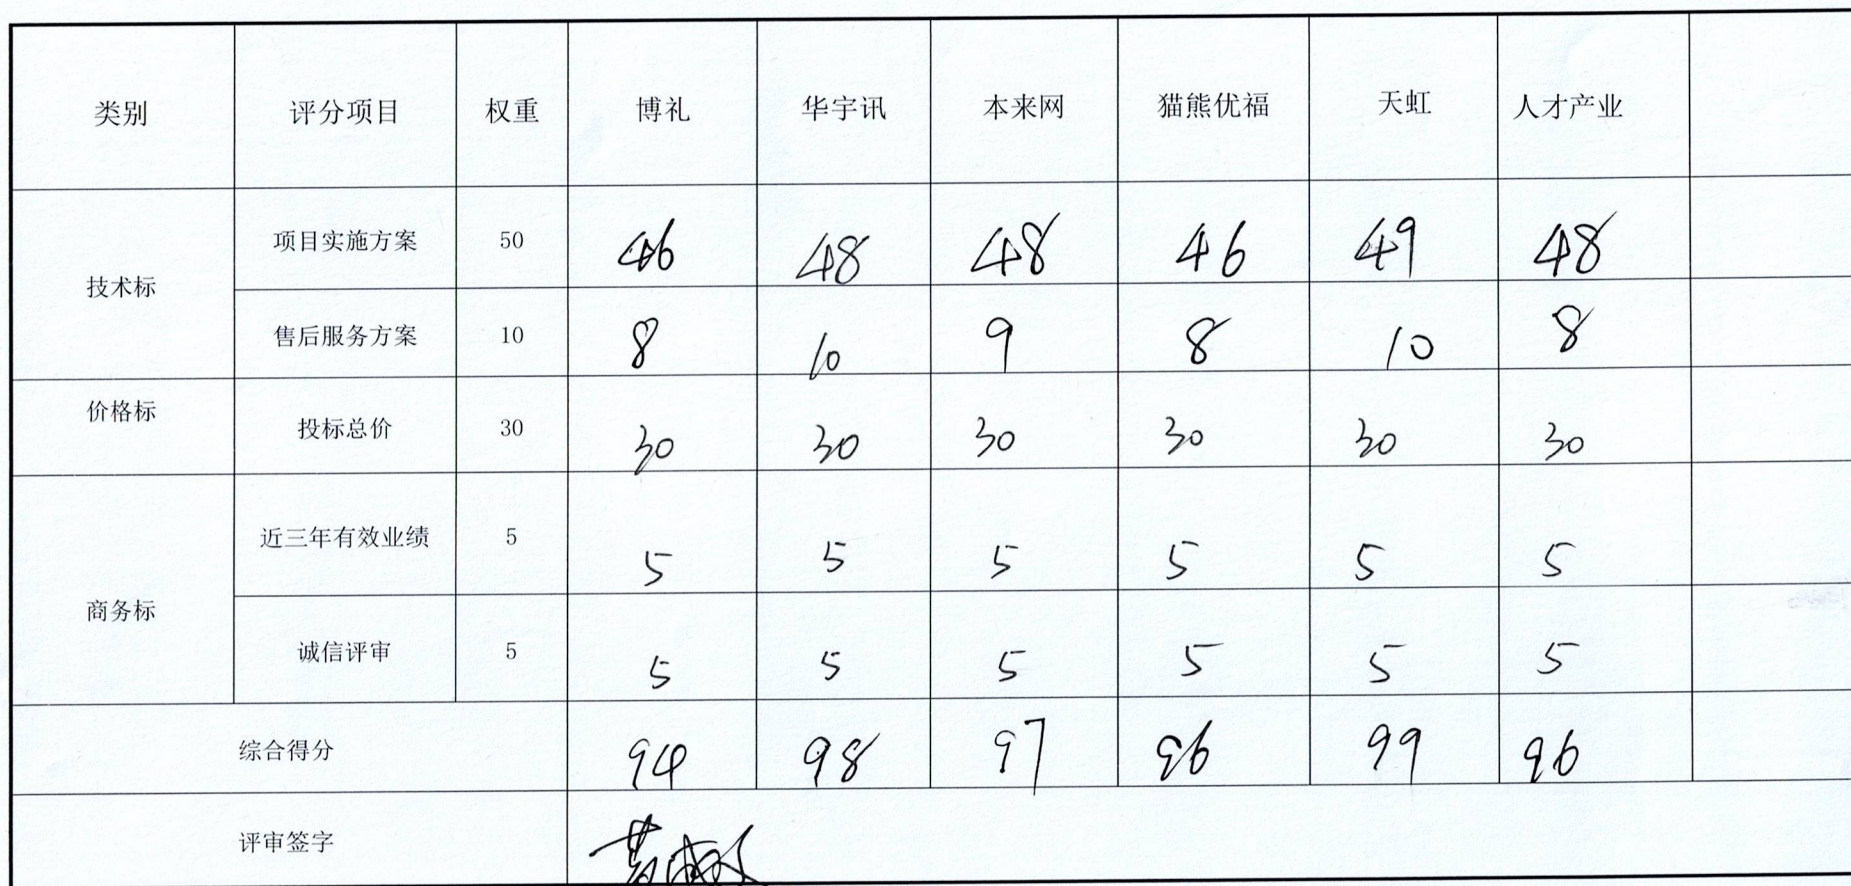 类别 评分项目 权重 博礼 华宇讯 本来网 猫熊优福 天虹 人才产业
技术标 项目实施方案 50 46 48 48 46 49 48
售后服务方案 10 8 10 9 8 10 8
价格标 投标总价 30 30 30 30 30 30 30
商务标 近三年有效业绩 5 5 5 5 5 5 5
诚信评审 5 5 5 5 5 5 5
综合得分 94 98 97 96 99 96
评审签字